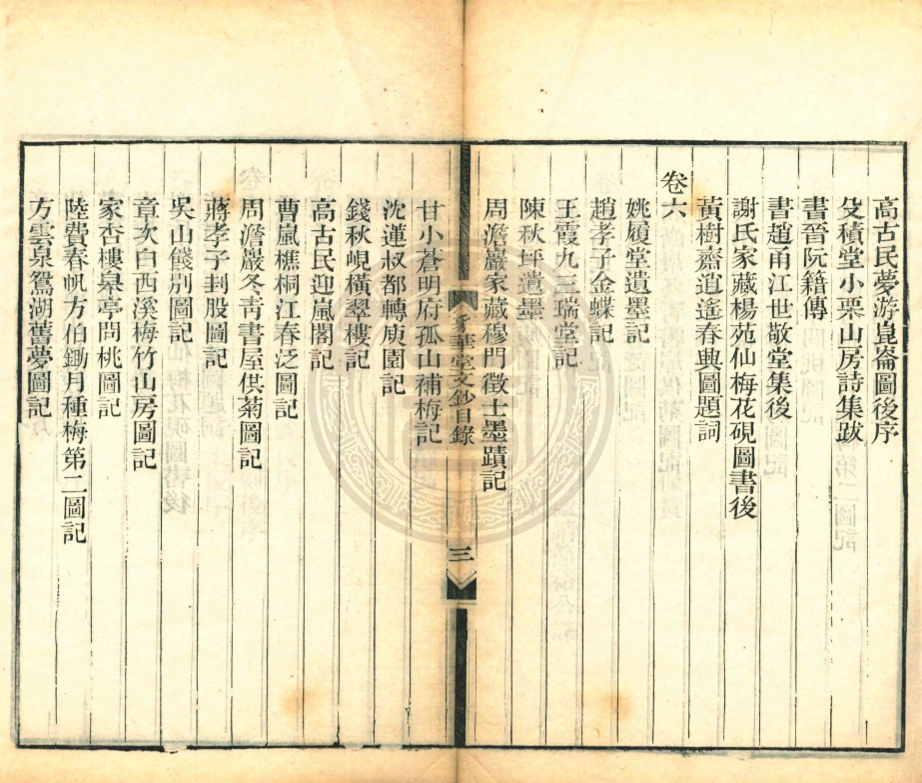 高古民夢游崑崙圖後序
殳積堂小栗山房詩集跋
書晉阮籍傳
書趙甬江世敬堂集後
謝氏家藏楊苑仙梅花硯圖書後
黃樹齋逍遙春典圖題詞
卷六
姚履堂遺墨記
趙孝子金蝶記
王霞九三瑞堂記
陳秋坪遺墨記
周澹巖家藏穆門徵士墨蹟記
華堂文鈔目錄
三
甘小蒼明府孤山補梅記
沈蓮叔都轉庾園記
錢秋峴橫翠樓記
高古民迎嵐閣記
曹嵐樵桐江春泛圖記
周澹巖冬靑書屋供菊圖記
蔣孝子刲股圖記
吳山餞別圖記
章次白西溪梅竹山房圖記
家杏樓皋亭問桃圖記
陸費春帆方伯鋤月種梅第二圖記
方雲泉鴛湖舊夢圖記